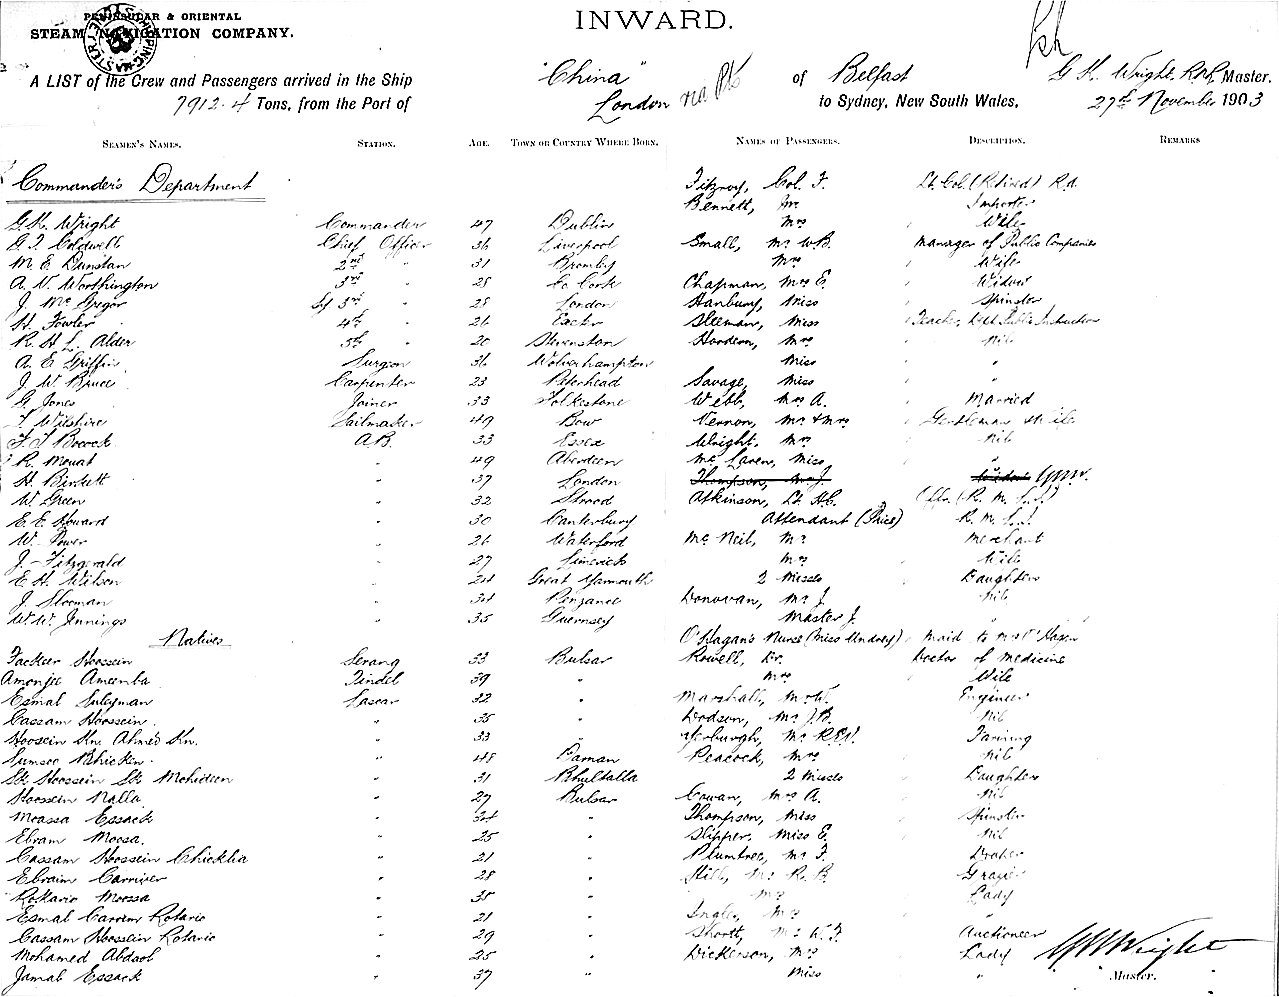 PENINSULAR & ORIENTAL
STEAM NAVIGATION COMPANY.
INWARD.
A LIST of the Crew and Passengers arrived in the Ship "China" of Belfast G K Wright, R.N.R. Master.
7912.4 Tons, from the Port of London via to Sydney, New South Wales, 27th November 1903
SEAMEN'S NAMES. STATION. AGE. TOWN OR COUNTRY WHERE BORN. NAMES OF PASSENGERS. DESCRIPTION. REMARKS
Commander's Department Fitzroy, Col. F. Lt. Col. (Retired) R.A.
Bennett, Mr Importer
G K Wright Commander 47 Dublin Mrs Wife
Coldwell Chief Officer 36 Liverpool Small, Mr W.B. Manager of Public Companies
M. E. Dunstan 2nd " 31 Bromley Mrs Wife
A. V. Worthington 3rd " 28 Co. Cork Chapman, Mrs E. Widow
J. McGregor 3rd " 28 London Hanbury, Miss Spinster
H. Fowler 4th " 26 Exeter Sleeman, Miss Teacher, Public Instruction
R. H. L. Alder 5th " 20 Stevenston Hordern, Mrs Nil
A. E. Griffin Surgeon 36 Wolverhampton Miss "
J. W. Bruce Carpenter 23 Peterhead Savage, Miss "
G. Jones Joiner 33 Folkestone Webb, Mrs A. Married
Wilshire Sailmaker 49 Bow Vernon, Mr & Mrs Gentleman Wife
A.B. 33 Essex Wright, Mrs Nil
R. Mouat " 49 Aberdeen McLaren, Miss "
H. Birkett " 37 London Thompson,
W. Green " 32 Strood Atkinson, Lt. H.C.
E. E. Howard " 30 Canterbury Attendant (Price)
W. Power " 26 Waterford McNeil, Mr Merchant
J. Fitzgerald " 27 Limerick Mrs Wife
E. H. Wilson " 24 Great Yarmouth 2 Misses Daughters
J. Slooman " 34 Penzance Donovan, Mr J. Nil
W. W. Jennings " 35 Guernsey Master J. "
Natives O'Hagan's Nurse (Miss Undrey) Maid to Mrs O'Hagan
Fackeer Hoosein Serang 33 Bulsar Rowell, Dr. Doctor of Medicine
Amonjee Ameenba Tindel 39 " Mrs Wife
Esmal Suleyman Lascar 32 " Marshall, Mr W. Engineer
Cassam Hoosein " 35 " Dodson, Mr J.B. Nil
Hoosein Kn. Ahmed Kn. " 33 " Yerburgh, Mr Farming
Sumsoo Bhicken " 48 Daman Peacock, Mrs Nil
Sk. Hoosein Sk. Mohideen " 31 Bhultalla 2 Misses Daughters
Hoosein Nalla " 27 Bulsar Cowan, Mrs A. Nil
Moossa Essack " 34 " Thompson, Miss Spinster
Ebram Moosa " 25 " Slipper, Miss E. Nil
Cassam Hoosein Chicklia " 21 " Plumtree, Mr F. Draper
Ebraim Carrier " 28 " Hill, Mr R. B. Grazier
Rokario Moossa " 35 " Mrs Lady
Esmal Carrim Rotario " 21 " Mrs "
Cassam Hoosein Rotario " 29 " Auctioneer
Mohamed Abdool " 25 " Dickerson, Mrs Lady
Jamal Essack " 37 " Miss "
G K Wright
Master.